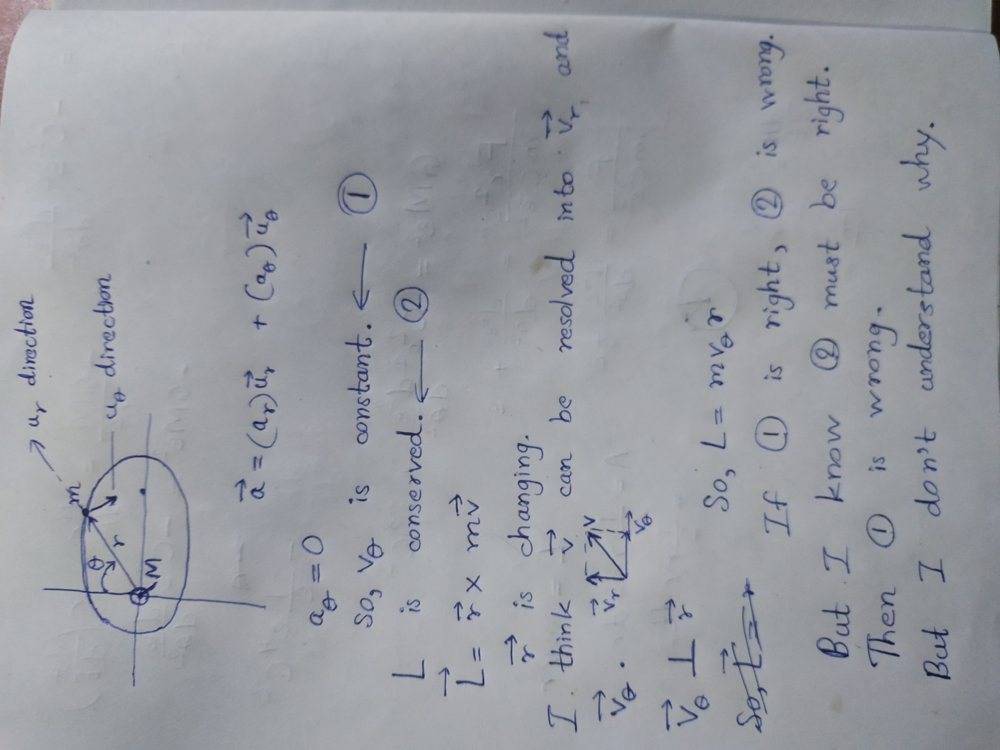 → u_r direction
m
u_θ direction
θ
r
M
a⃗ = (a_r)u⃗_r + (a_θ)u⃗_θ
a_θ = 0
So, v_θ is constant. ← ①
L is conserved. ← ②
L⃗ = r⃗ × mv⃗
r⃗ is changing.
I think v⃗ can be resolved into v⃗_r, and
v⃗_θ. v⃗_r v v⃗_θ
v⃗_θ ⊥ r⃗
So, L = m v_θ r
If ① is right, ② is wrong.
But I know ② must be right.
Then ① is wrong.
But I don't understand why.